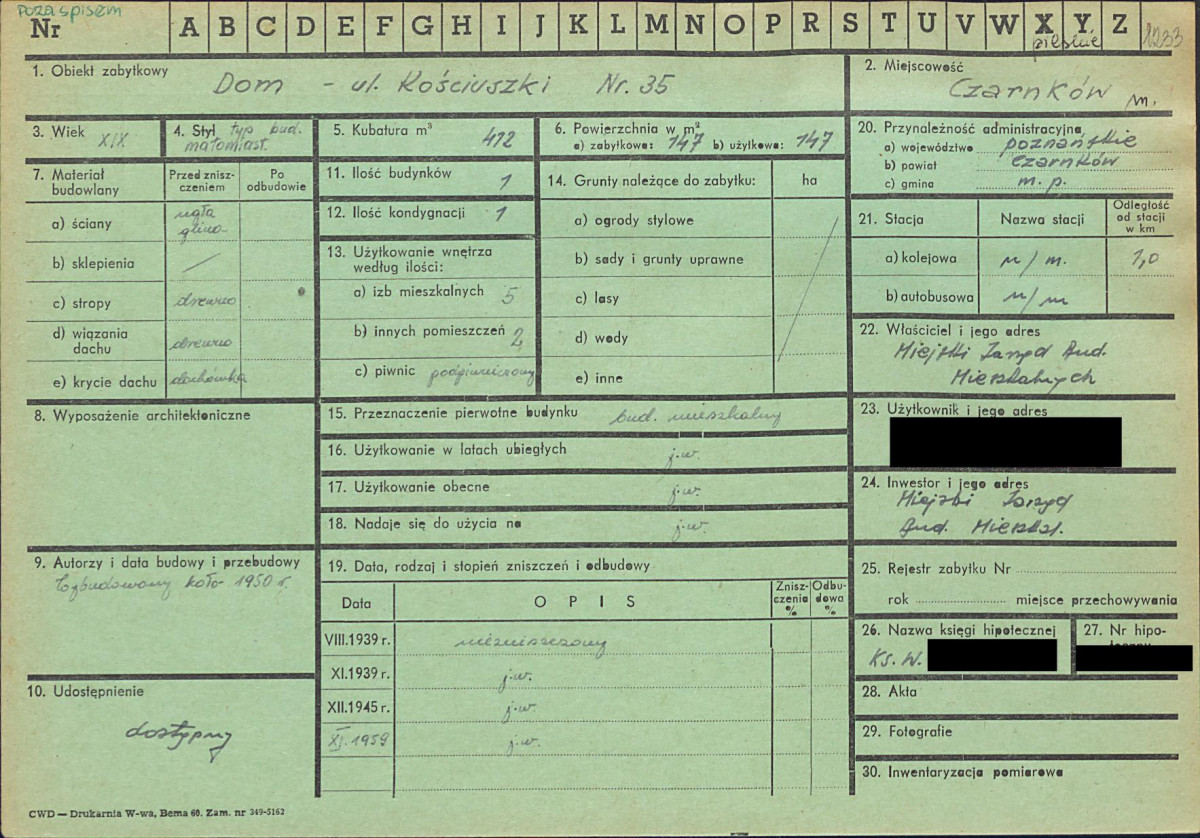 poza spisem
Nr A B C D E F G H I J K L M N O P R S T U V W X Y Z
pilskie 1233
1. Obiekt zabytkowy Dom - ul. Kościuszki Nr. 35
2. Miejscowość Czarnków m.
3. Wiek XIX
4. Styl typ bud. małomiast.
5. Kubatura m³ 412
6. Powierzchnia w m²
a) zabytkowa: 147 b) użytkowa: 147
7. Materiał budowlany
Przed zniszczeniem
Po odbudowie
a) ściany cegła glina
b) sklepienia /
c) stropy drewno
d) wiązania dachu drewno
e) krycie dachu dachówka
8. Wyposażenie architektoniczne
9. Autorzy i data budowy i przebudowy
koło 1950 r.
10. Udostępnienie
dostępny
11. Ilość budynków 1
12. Ilość kondygnacji 1
13. Użytkowanie wnętrza
według ilości:
a) izb mieszkalnych 5
b) innych pomieszczeń 2
c) piwnic podpiwniczony
14. Grunty należące do zabytku: ha
a) ogrody stylowe
b) sady i grunty uprawne
c) lasy
d) wody
e) inne
15. Przeznaczenie pierwotne budynku bud. mieszkalny
16. Użytkowanie w latach ubiegłych j.w.
17. Użytkowanie obecne j.w.
18. Nadaje się do użycia na j.w.
19. Data, rodzaj i stopień zniszczeń i odbudowy
Data OPIS Zniszczenia % Odbudowa %
VIII.1939 r. niezniszczony
XI.1939 r. j.w.
XII.1945 r. j.w.
XI.1959 j.w.
20. Przynależność administracyjna
a) województwo poznańskie
b) powiat Czarnków
c) gmina m.p.
21. Stacja Nazwa stacji Odległość od stacji w km
a) kolejowa n/m. 1,0
b) autobusowa n/m
22. Właściciel i jego adres
Miejski Zarząd Bud.
Mieszkalnych
23. Użytkownik i jego adres
24. Inwestor i jego adres
Miejski Zarząd
Bud. Mieszkal.
25. Rejestr zabytku Nr
rok miejsce przechowywania
26. Nazwa księgi hipotecznej
Ks. W.
27. Nr hipo-
28. Akta
29. Fotografie
30. Inwentaryzacja pomiarowa
CWD — Drukarnia W-wa, Bema 60. Zam. nr 349-5162